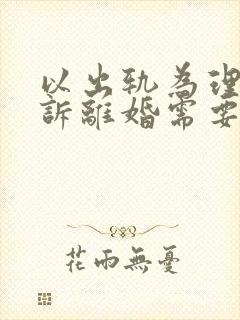 以出軌為理
訴離婚需要
花雨無憂